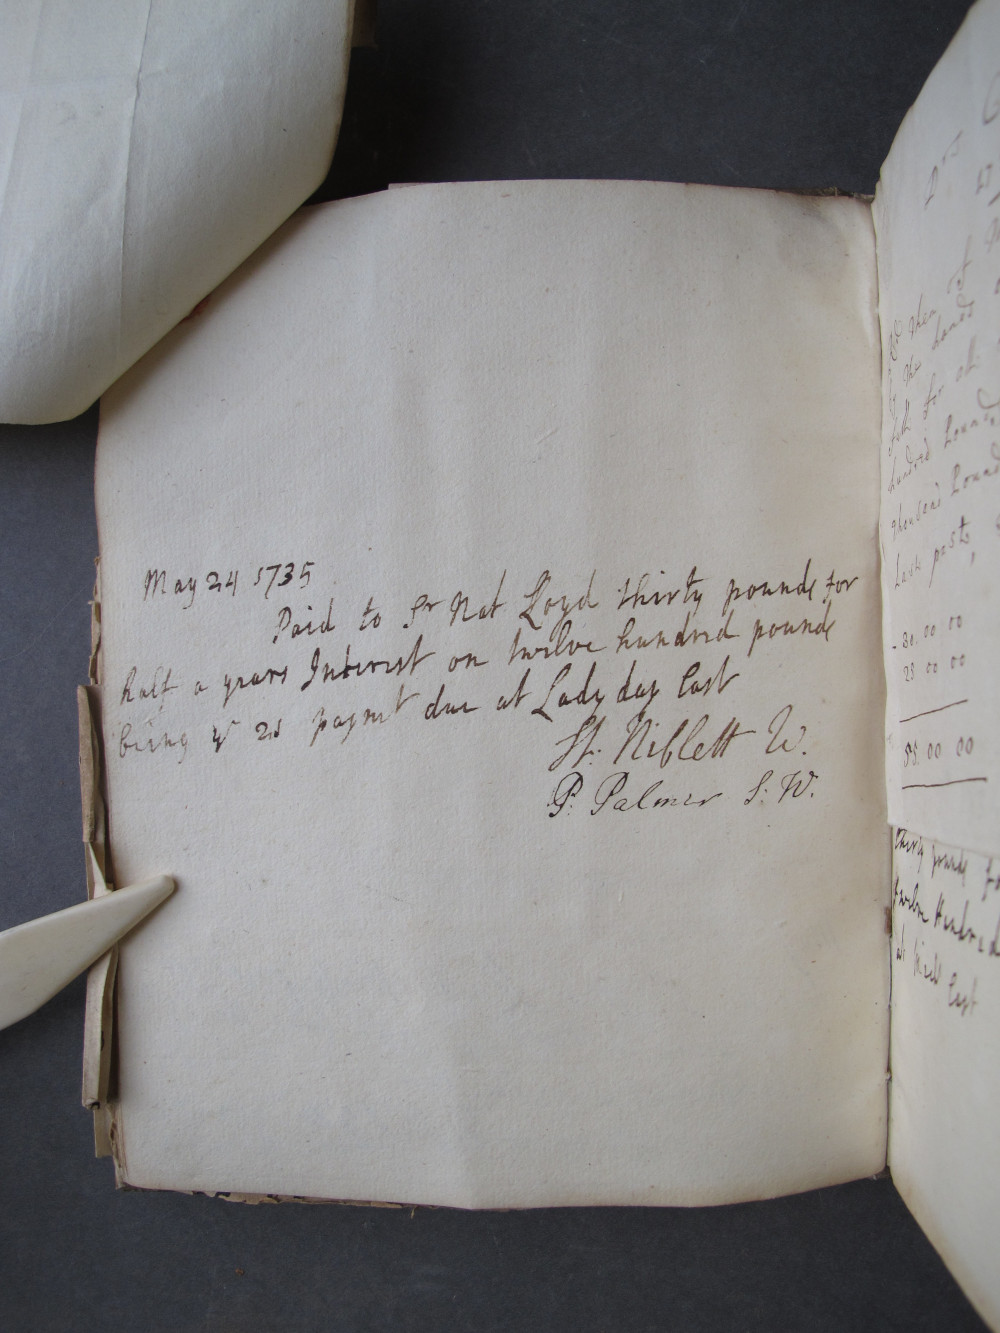 May 24 1735
Paid to Sr Nat Loyd thirty pounds for
half a years Interest on twelve hundred pounds
being ye 2d paymt due at Lady day last
St. Niblett W.
P. Palmer S. W.
then of
the hands
for all
hundred Pounds
thousand Pounds
Last past,
30. 00 00
00 00
55. 00 00
thirty pounds fo
twelve Hundred
at Mich last